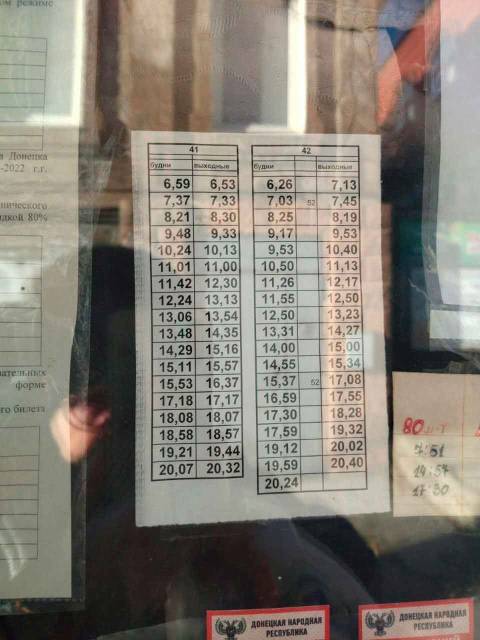 ом режиме
а Донецка
-2022 г.г.
нического
идкой 80%
вательных
форме
го билета
41
будни выходные
6,59 6,53
7,37 7,33
8,21 8,30
9,48 9,33
10,24 10,13
11,01 11,00
11,42 12,30
12,24 13,13
13,06 13,54
13,48 14,35
14,29 15,16
15,11 15,57
15,53 16,37
17,18 17,17
18,08 18,07
18,58 18,57
19,21 19,44
20,07 20,32
42
будни выходные
6,26 7,13
7,03 52 7,45
8,25 8,19
9,17 9,53
9,53 10,40
10,50 11,13
11,26 12,17
11,55 12,50
12,50 13,23
13,31 14,27
14,00 15,00
14,55 15,34
15,37 52 17,08
16,59 17,55
17,30 18,28
17,59 19,32
19,12 20,02
19,59 20,40
20,24
80
7:51
14:57
17:30
ДОНЕЦКАЯ НАРОДНАЯ
РЕСПУБЛИКА
ДОНЕЦКАЯ НАРОДНАЯ
РЕСПУБЛИКА